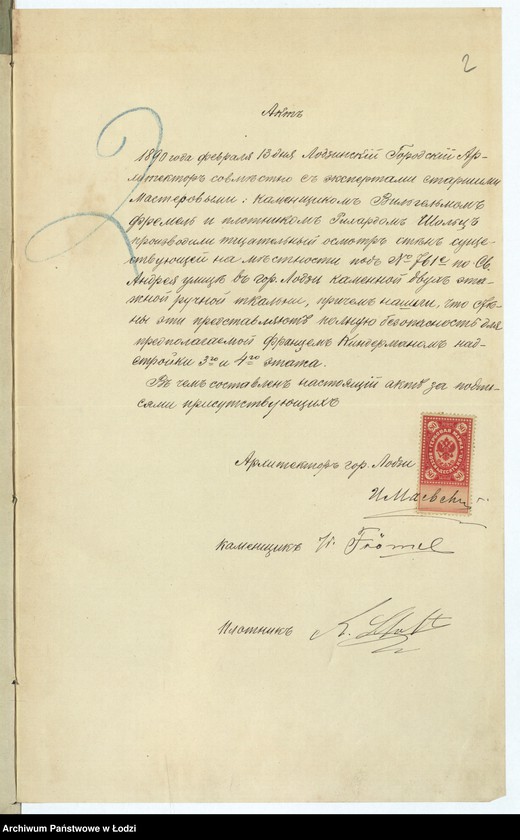 2
Актъ
1890 года февраля 13 дня Лодзинскій Городской Ар-
хитекторъ совмѣстно съ экспертами старшими
Мастеровыми: каменщикомъ Вильгельмомъ
Фремель и плотникомъ Рихардомъ Шольцъ
производили тщательный осмотръ стѣнъ суще-
ствующей на мѣстности подъ № 761 е по Св.
Андрея улицѣ въ гор. Лодзи каменной двухъ эта-
жной ручной ткальни, причемъ нашли, что стѣ-
ны эти представляютъ полную безопасность для
предполагаемой Францемъ Киндерманомъ над-
стройки 3го и 4го этажа.
Въ чемъ составленъ настоящій актъ за подпи-
сями присутствующихъ
Архитекторъ гор. Лодзи
ИМаевскій
Каменщикъ W. Frömel
Плотникъ
2
Archiwum Państwowe w Łodzi